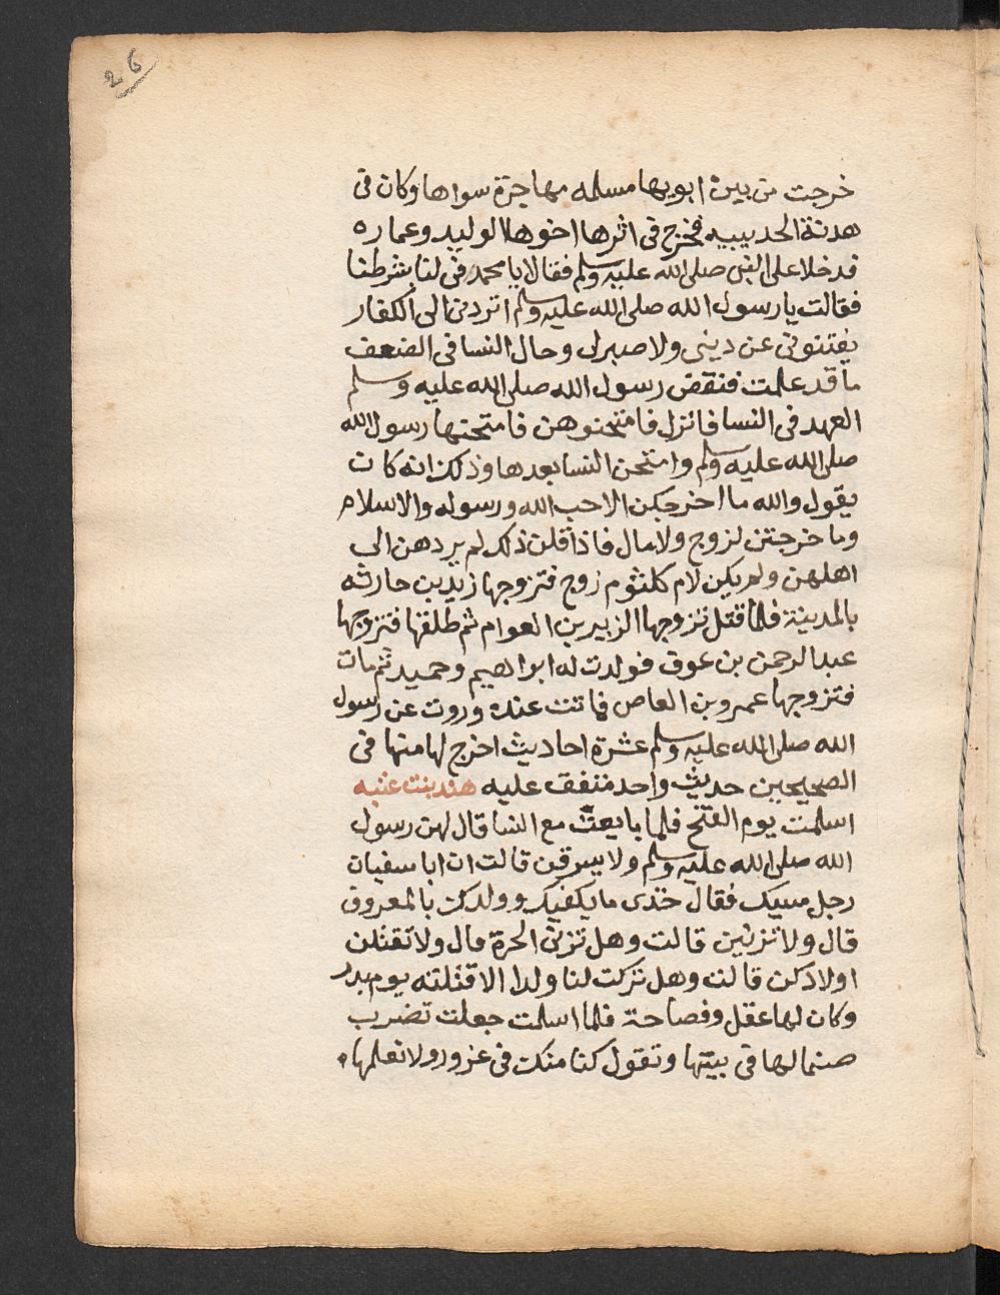 26
خرجت من بين ابويها مسلمه مهاجرة سواها وكان فى
هدنة الحديبيه فخرج فى اثرها اخوها الوليد وعماره
قدخلا على النبى صلى الله عليه وسلم فقالا يا محمد فى لنا بشرطنا
فقالت يا رسول الله صلى الله عليه وسلم اتردنى الى الكفار
يفتنونى عن دينى ولا صبرلى وحال النسا فى الضعف
ما قد علمت فنقض رسول الله صلى الله عليه وسلم
العهد فى النسا فانزل فامتحنوهن فامتحنها رسول الله
صلى الله عليه وسلم وامتحن النسا بعدها وذلك انه كان
يقول والله ما اخرجكن الاحب الله ورسوله والاسلام
وما خرجتن لزوج ولا مال فاذا قلن ذلك لم يردهن الى
اهلهن ولم يكن لام كلثوم زوج فتزوجها زيد بن حارثه
بالمدينة فلما قتل تزوجها الزبير بن العوام ثم طلقها فتزوجها
عبد الرحمن بن عوف فولدت له ابراهيم وحميد ثم مات
فتزوجها عمرو بن العاص فماتت عنده وروت عن رسول
الله صلى الله عليه وسلم عشرة احاديث اخرج لها منها فى
الصحيحين حديث واحد متفق عليه هند بنت عتبه
اسلمت يوم الفتح فلما بايعت مع النسا قال لهن رسول
الله صلى الله عليه وسلم ولا يسرقن قالت ان ابا سفيان
رجل مسيك فقال خذى ما يكفيك وولدك بالمعروف
قال ولا تزنين قالت وهل تزنى الحرة قال ولا تقتلن
اولادكن قالت وهل تركت لنا ولدا الا قتلته يوم بدر
وكان لها عقل وفصاحة فلما اسلمت جعلت تضرب
صنما لها فى بيتها وتقول كنا منك فى غرور ولا نعلم لها